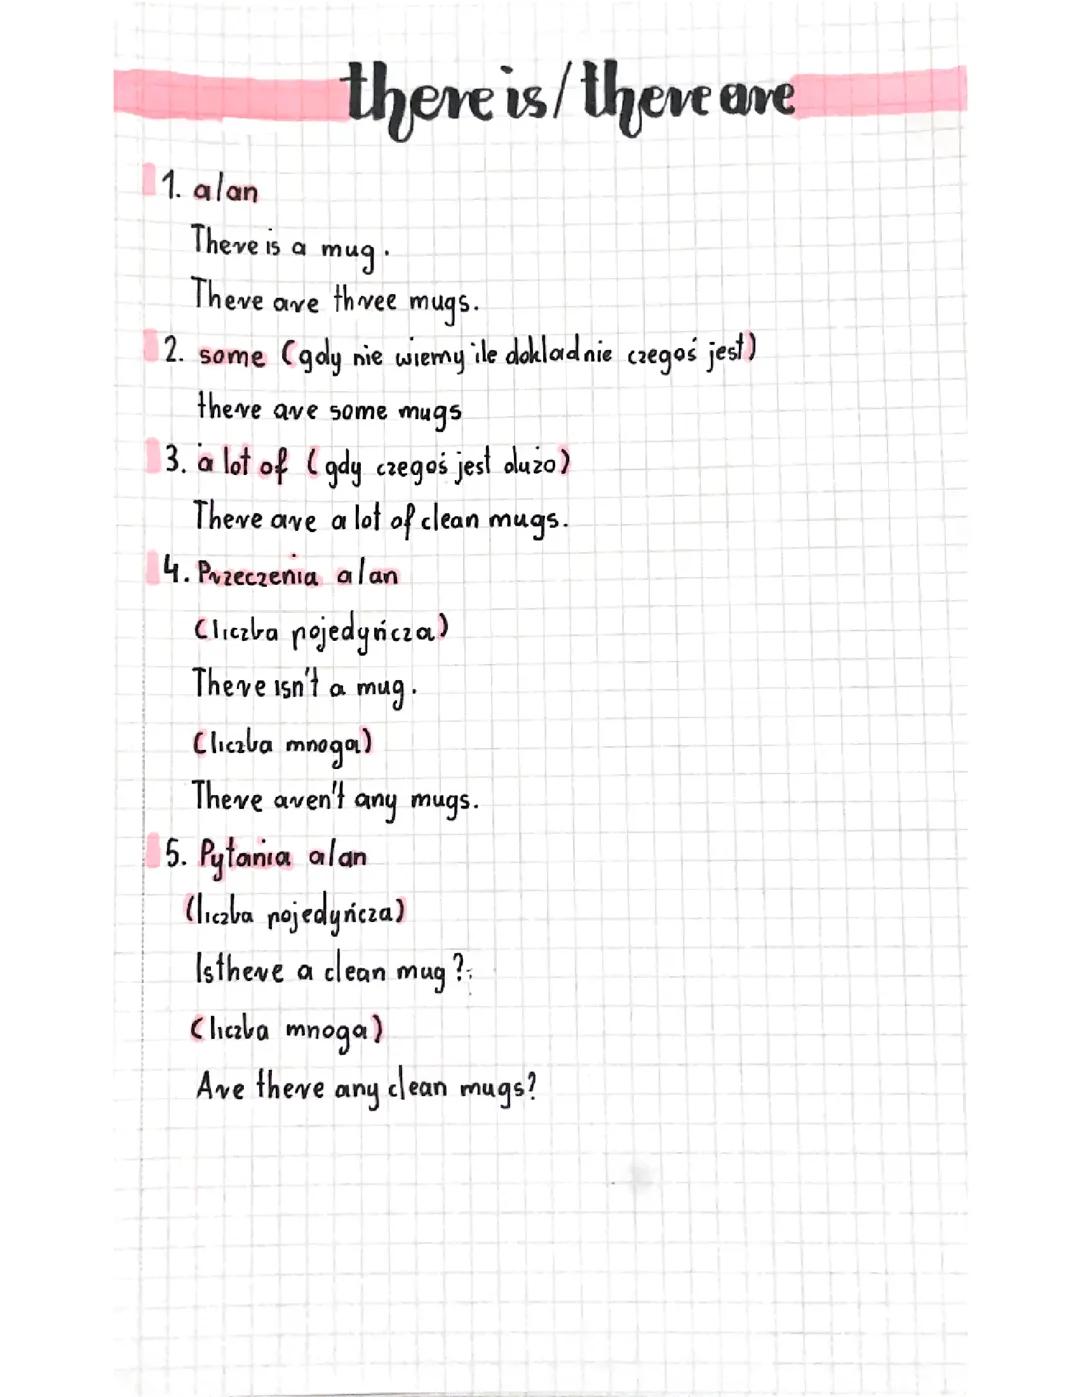 there is/there are
1. a/an
There is a mug.
There are three mugs.
2. some (gdy nie wiemy ile dokladnie czegoś jest)
there are some mugs
3. a lot of (gdy czegoś jest dużo)
There are a lot of clean mugs.
4. Przeczenia a/an
(liczba pojedyńcza)
There isn't a mug.
(liczba mnoga)
There aren't any mugs.
5. Pytania a/an
(liczba pojedyńcza)
Is there a clean mug?
(liczba mnoga)
Are there any clean mugs?